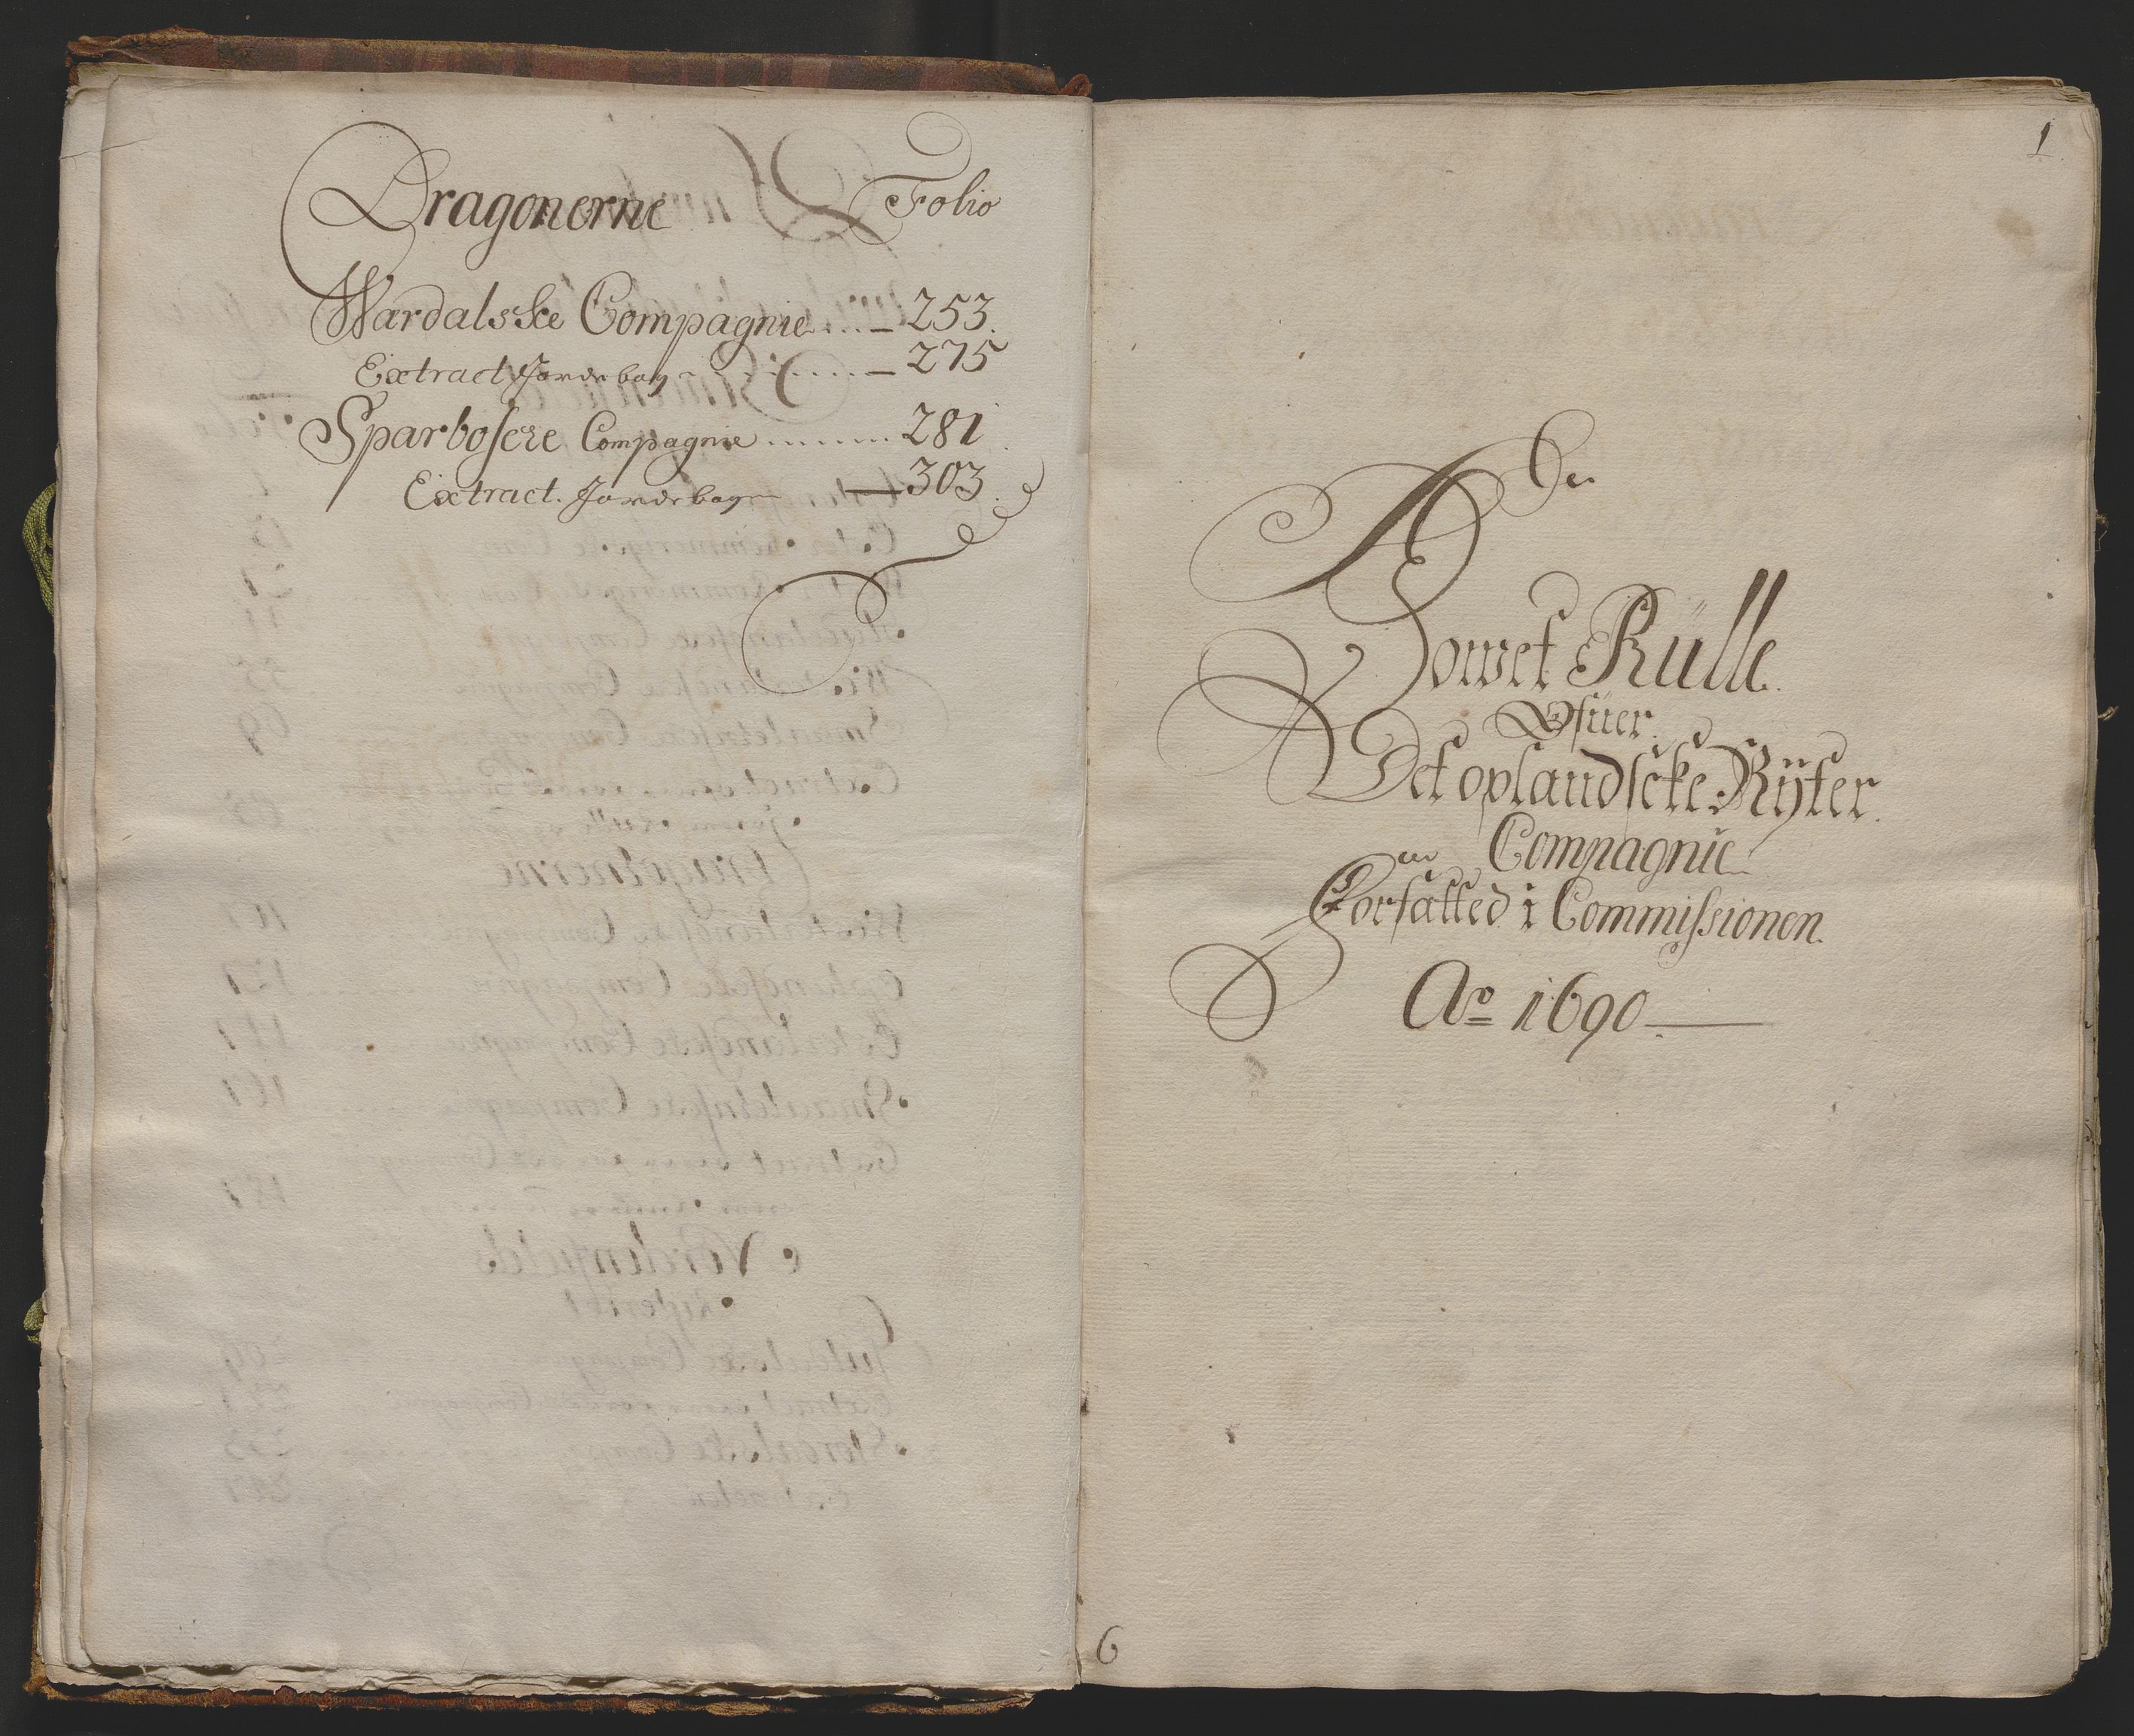 Dragonerne Folio
Wærdalske Compagnie.... 253.
Extract Jordebog ........ 275
Sparbosche Compagnie ........ 281
Extract. Jordebogen 303.
1
En
Howet Rülle
Ofüer.
Det oplandscke Rÿter.
Compagnie
Forfatted i Commissionen.
Ao 1690
6